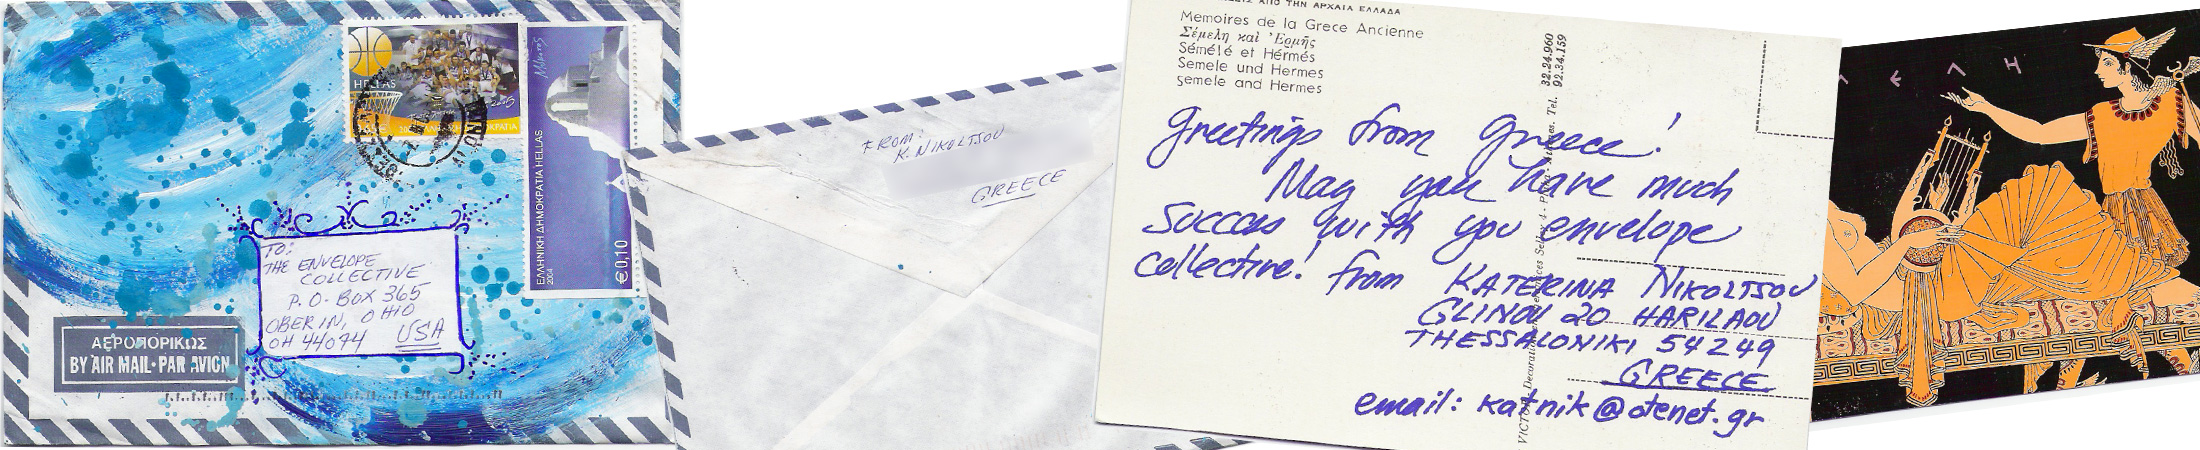 HELLAS
2005
ΕΛΛΗΝΙΚΗ ΔΗΜΟΚΡΑΤΙΑ HELLAS
2004
€0,10
TO:
THE ENVELOPE
COLLECTIVE
P.O. BOX 365
OBERLIN, OHIO
OH 44074 USA
ΑΕΡΟΠΟΡΙΚΩΣ
BY AIR MAIL • PAR AVION
FROM:
K. NIKOLTSOU
GREECE
ΑΠΟ ΤΗΝ ΑΡΧΑΙΑ ΕΛΛΑΔΑ
Memoires de la Grece Ancienne
Σέμελη καί Ἑρμῆς
Sémélé et Hérmés
Semele und Hermes
semele and Hermes
32.24.960
Tel. 92.34.159
Greetings from Greece!
May you have much
success with you envelope
collective! from KATERINA NIKOLTSOU
GLINOU 20 HARILAOU
THESSALONIKI 54249
GREECE
email: katnik@otenet.gr
Ε Λ Η